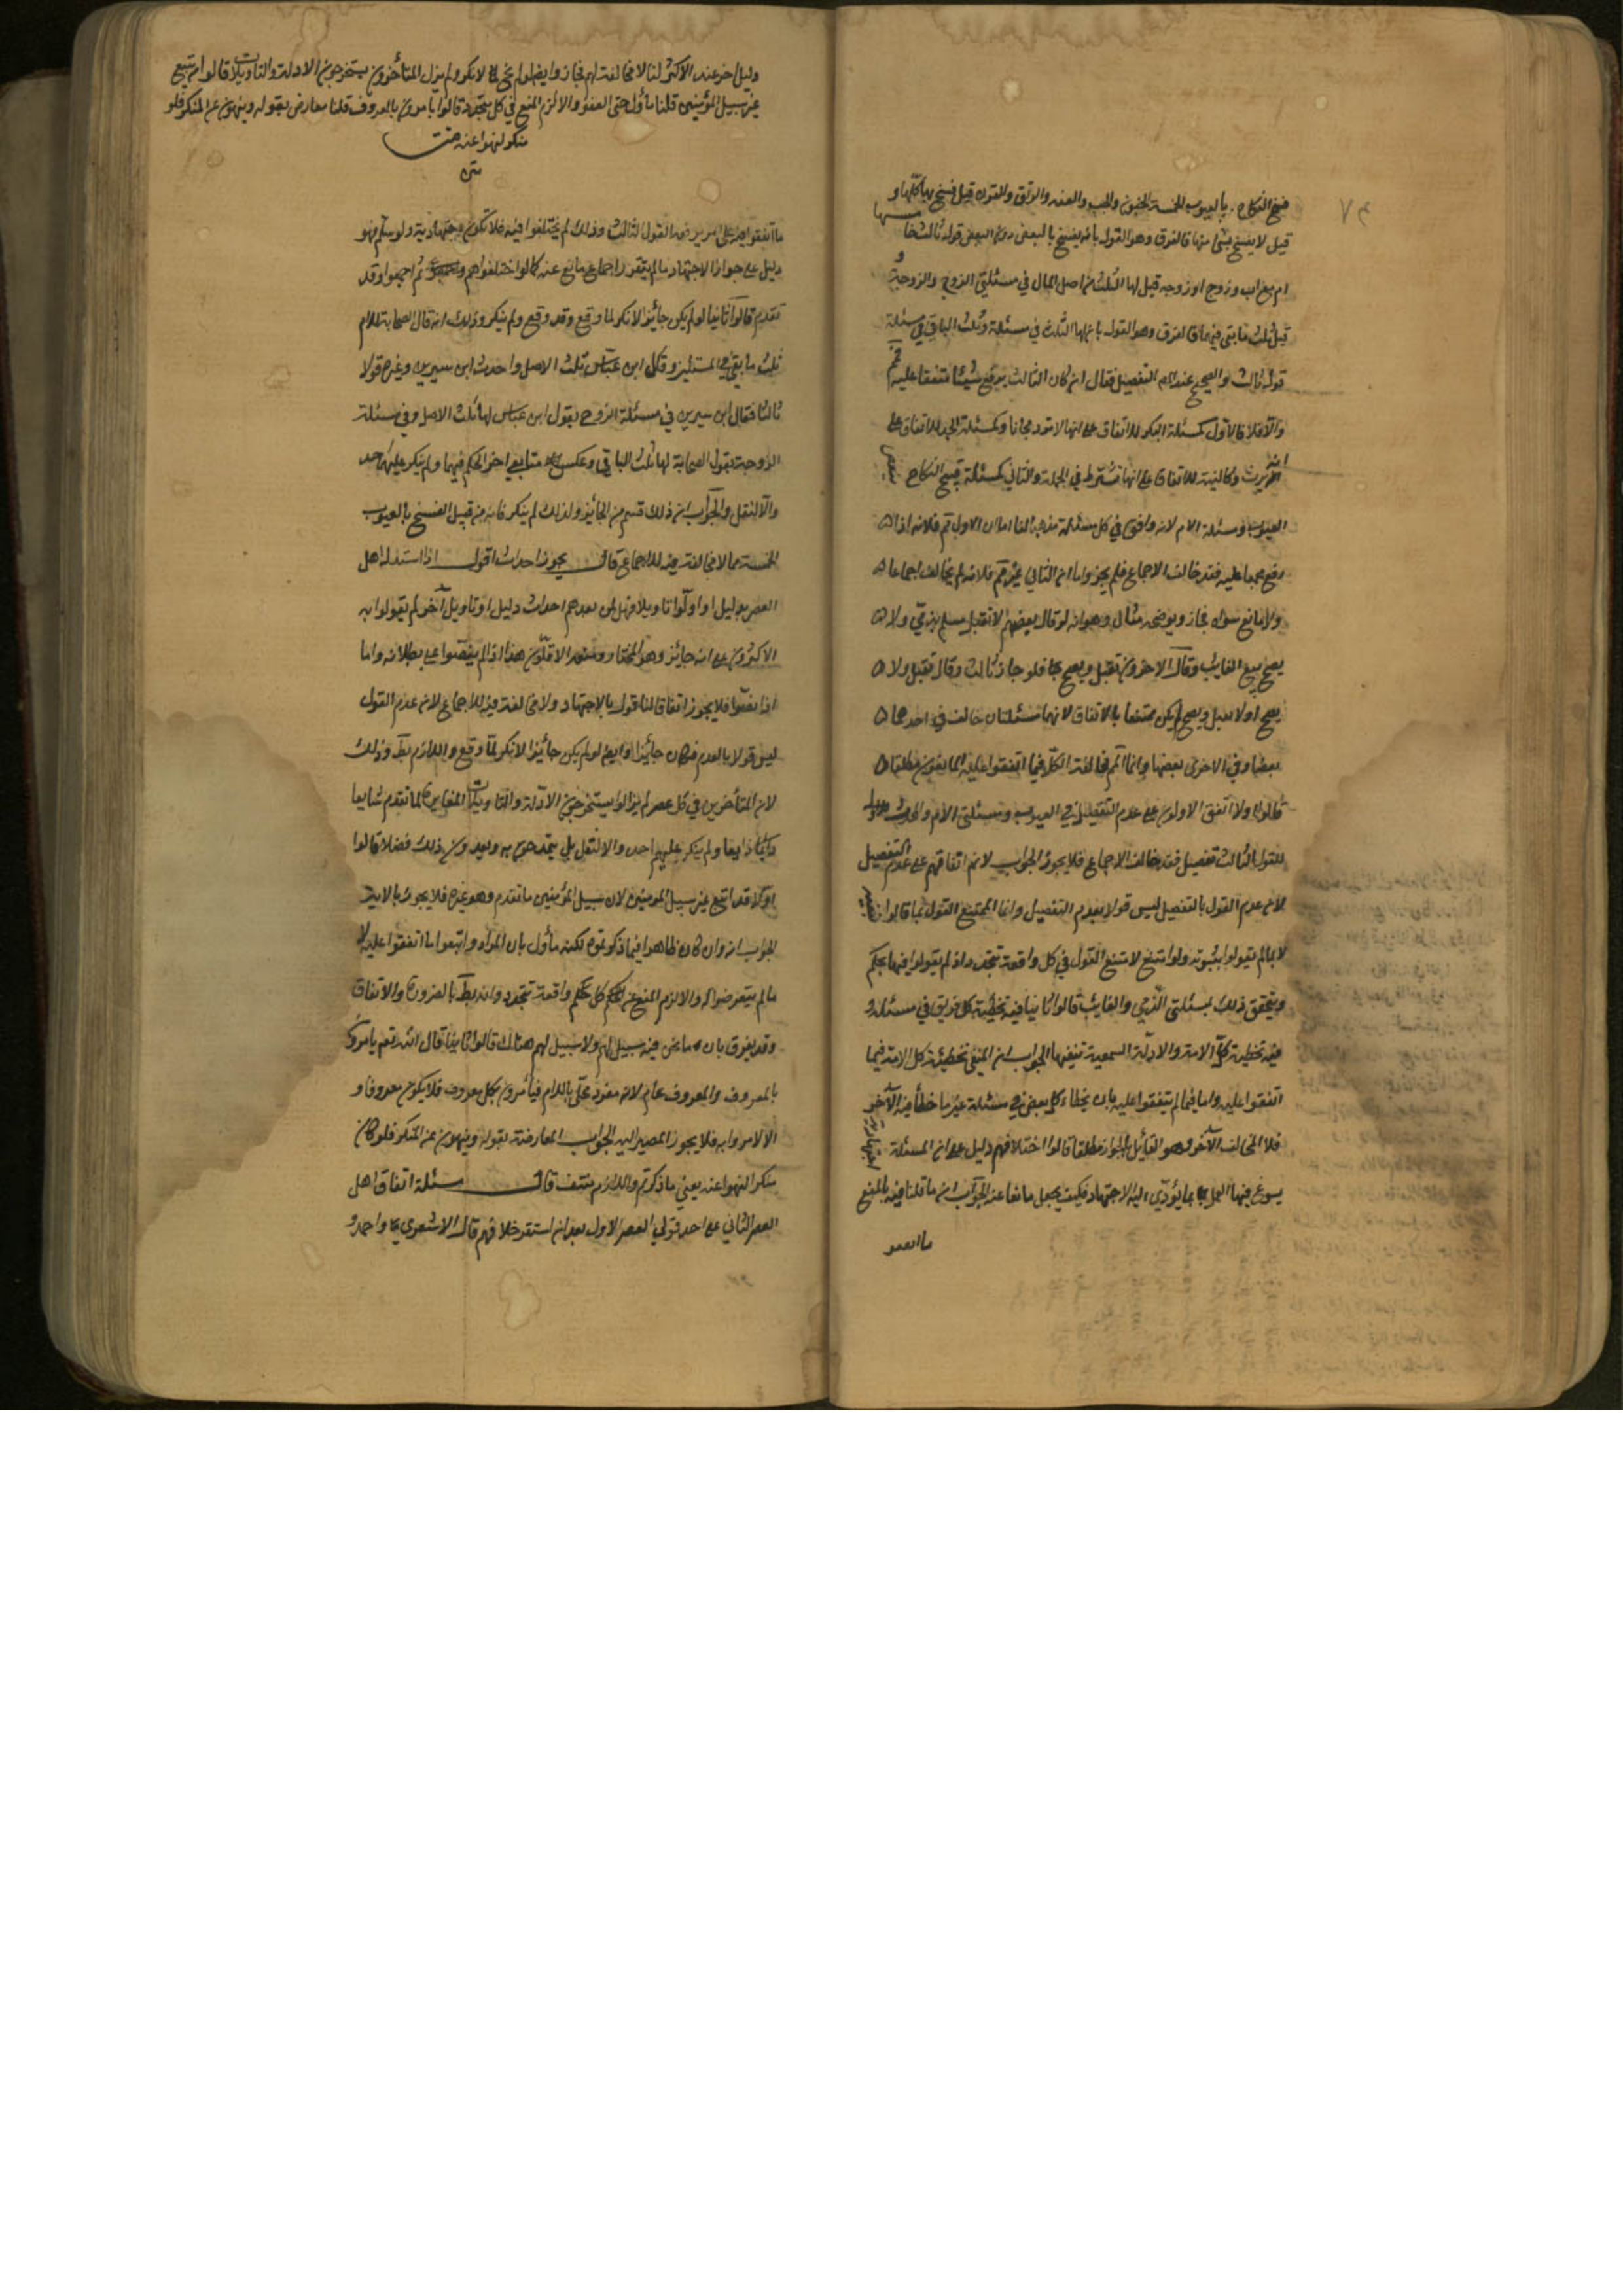 فسخ النكاح بالعيوب الخمسة الجنون والجب والعنة والرتق والقرن قيل يفسخ بها كلها و
قيل لا يفسخ بشئ منها فالفرق وهو القول بانه يفسخ بالبعض دون البعض قول ثالث
ام مع اب وزوج او زوجة قيل لها الثلث من اصل المال في مسئلتي الزوج والزوجة و
قيل ثلث ما بقي فيهما فالفرق وهو القول بان لها الثلث في مسئلة وثلث الباقي في مسئلة
قول ثالث والصحيح عند المص التفصيل فقال ان كان الثالث يرفع شيئا متفقا عليه فمم
والا فلا فالاول كمسئلة البكر للاتفاق على انها لا ترد مجانا وكمسئلة الجد للاتفاق على
انه يرث وكالنية للاتفاق على انها تشترط في الجملة والثاني كمسئلة فسخ النكاح ببعض
العيوب ومسئلة الام لانه وافق في كل مسئلة مذهبا لنا اما ان الاول مم فلانه اذا
رفع مجمعا عليه فقد خالف الاجماع فلم يجز واما ان الثاني غير مم فلانه لم يخالف اجماعا
ولا مانع سواه فجاز ويوضحه مثال وهو انه لو قال بعضهم لا يقتل مسلم بذمي ولا
يصح بيع الغايب وقال الاخرون يقتل ويصح فلو جاء ثالث وقال يقتل ولا
يصح او لا يقتل ويصح لم يكن ممتنعا بالاتفاق لانهما مسئلتان خالف في احدهما
بعضا وفي الاخرى بعضها وانما الممم مخالفة الكل فيما اتفقوا عليه المانعون مطلقا
قالوا اولا اتفق الاولون على عدم التفصيل في العيوب ومسئلتي الام
للقول الثالث تفصيل فقد خالف الاجماع فلا يجوز الجواب لا نم اتفاقهم على عدم التفصيل
لان عدم القول بالتفصيل ليس قولا بعدم التفصيل وانما الممتنع القول بما قالوا بنفيه
لا بما لم يقولوا بثبوته ولو امتنع لامتنع القول في كل واقعة تتجدد اذ لم يقولوا فيها بحكم
ويتحقق ذلك بمسئلتي الذمي والغايب قالوا ثانيا فيه تخطئة كل فريق في مسئلة و
فيه تخطئة كل الامة والادلة السمعية تنفيها الجواب ان المنفي تخطئة كل الامة فيما
اتفقوا عليه واما فيما لم يتفقوا عليه بان يخطا كل بعض في مسئلة غير ما خطأ فيه الآخر
فلا المخالف الآخر وهو القائل بالجواز مطلقا قالوا اختلافهم دليل على ان المسئلة اجتهادية
يسوغ فيها العمل بما يؤدي اليه الاجتهاد فكيف يجعل مانعا عنه الجواب ان ما قلنا فيه بالمنع
ما اتفقوا
دليل اخر عند الاكثر لنا لا مخالفة لهم فجاز وايضا لو لم يجز لانكر ولم يزل المتأخرون يستخرجون الادلة والتأويلات قالوا اتبع
غير سبيل المؤمنين قلنا مأول حتى اتفقوا والا لزم المنع في كل متجدد قالوا يامرون بالمعروف قلنا معارض بقوله وينهون عن المنكر فلو كان
منكرا لنهوا عنه
ما اتفقوا فيه على امر يرفعه القول الثالث وذلك لم يختلفوا فيه فلا تكون اجتهادية ولو سلم فهو
دليل على جواز الاجتهاد ما لم يتقرر اجماع مانع عنه كما لو اختلفوا هم ثم اجمعوا وقد
تقدم قالوا ثانيا لو لم يكن جائزا لانكر لما وقع وقد وقع ولم ينكر وذلك انه قال الصحابة للام
ثلث ما بقي في المسئلتين وقال ابن عباس ثلث الاصل واحدث ابن سيرين وغيره قولا
ثالثا فقال ابن سيرين في مسئلة الزوج بقول ابن عباس لها ثلث الاصل وفي مسئلة
الزوجة بقول الصحابة لها ثلث الباقي وعكس تابعي اخر الحكم فيهما ولم ينكر عليهما احد
والا لنقل والجواب ان ذلك قسم من الجائز ولذلك لم ينكر فانه من قبيل الفسخ بالعيوب
الخمسة مما لا مخالفة فيه للاجماع قال يجوز احداث اقول اذا استدل اهل
العصر بدليل او اولوا تاويلا فهل لمن بعدهم احداث دليل او تاويل آخر لم يقولوا به
الاكثرون على انه جائز وهو المختار ومنعه الاقلون هذا اذا لم ينصوا على بطلانه واما
اذا نصوا فلا يجوز اتفاقا لنا قول بالاجتهاد ولا مخالفة فيه للاجماع لان عدم القول
ليس قولا بالعدم فكان جائزا وايضا لو لم يكن جائزا لانكر لما وقع واللازم بط وذلك
لان المتأخرين في كل عصر لم يزالوا يستخرجون الادلة والتاويلات المغايرة لما تقدم شايعا
ذايعا ولم ينكر عليهم احد والا لنقل بل يتمدحون به ويعدون ذلك فضلا قالوا
اولا قد اتبع غير سبيل المومنين لان سبيل المؤمنين ما تقدم وهو غيره فلا يجوز بالاية
الجواب انه وان كان ظاهرا فيما ذكرتموه لكنه مأول بان المراد واتبعوا ما اتفقوا عليه لا
ما لم يتعرضوا له والا لزم المنع عن الحكم كل حكم واقعة تتجدد وانه بط بالضرورة والاتفاق
وقد يفرق بان ما نحن فيه سبيل لهم ولا سبيل لهم هنالك قالوا ثانيا قال الله تعم يامرون
بالمعروف والمعروف عام لانه مفرد محلى باللام فيأمرون بكل معروف فلا يكون معروفا و
الا لامروا به فلا يجوز المصير اليه الجواب المعارضة بقوله وينهون عن المنكر فلو كان
منكرا لنهوا عنه يعني ما ذكرتم واللازم منتف قال مسئلة اتفاق اهل
العصر الثاني على احد قولي العصر الاول بعد ان استقر خلافهم قال الاشعري واحمد و